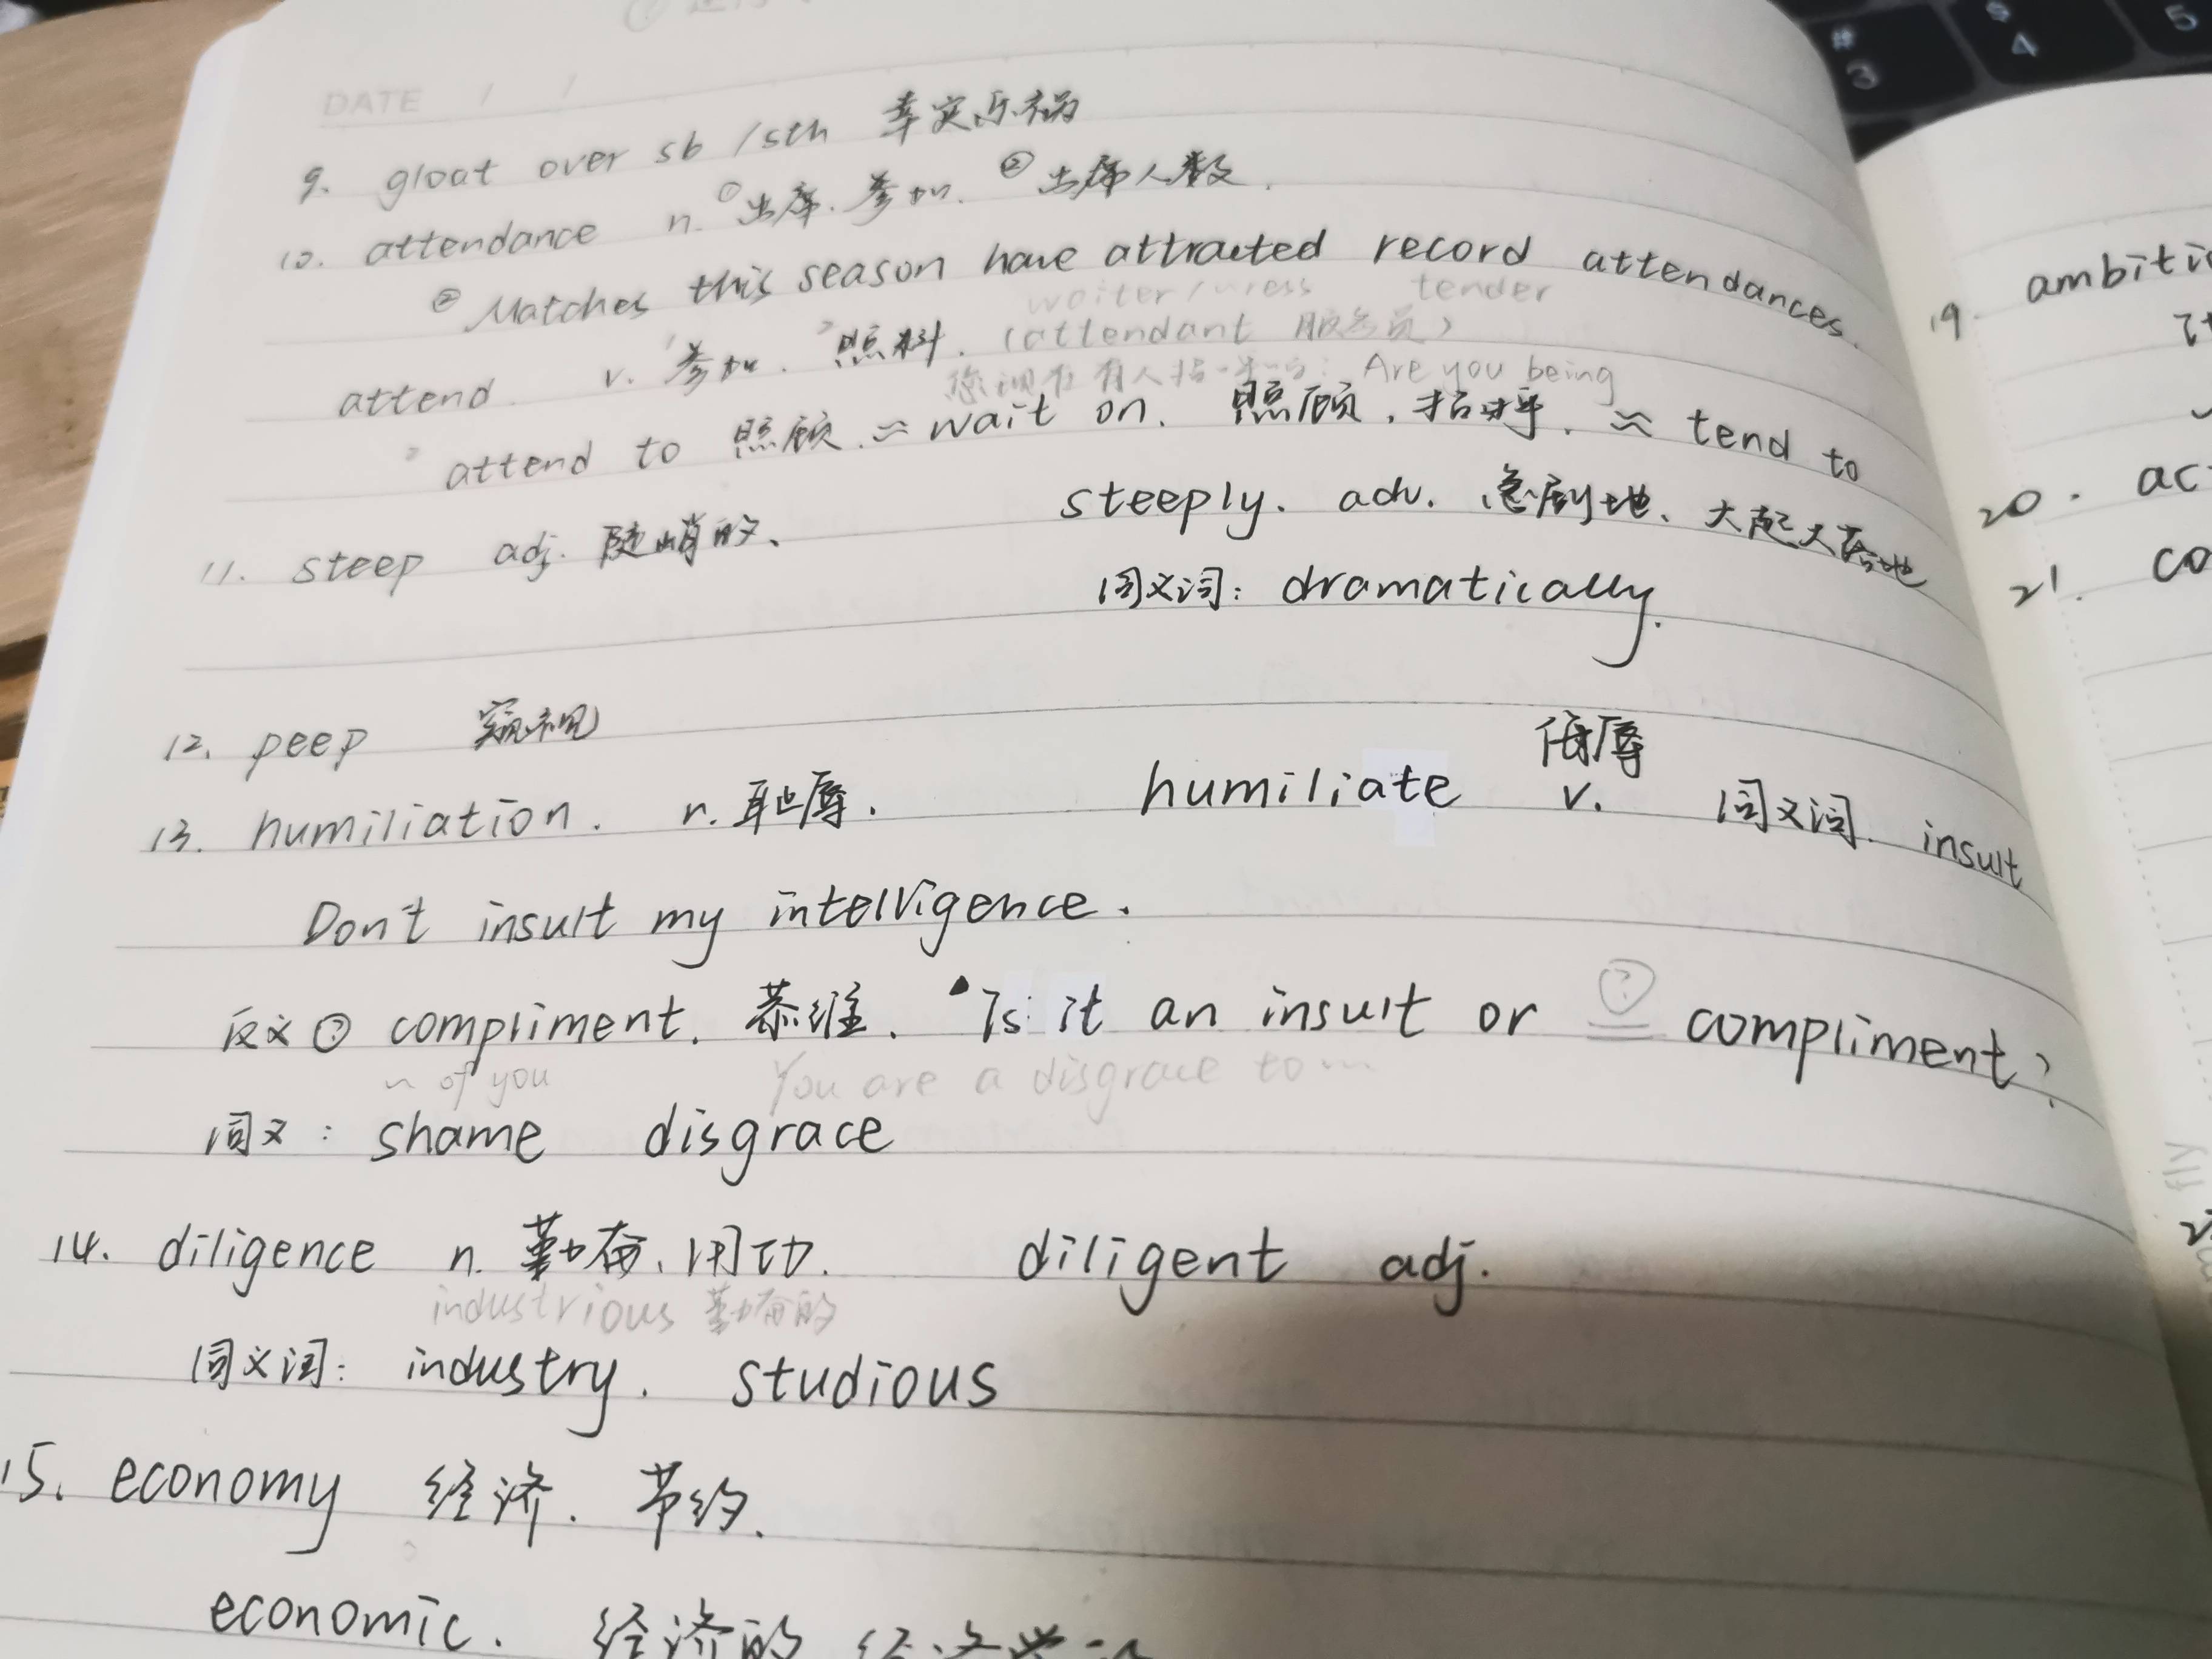 DATE / /
9. gloat over sb /sth 幸灾乐祸
10. attendance n. ①出席. 参加. ②出席人数.
② Matches this season have attracted record attendances.
waiter / ress tender
attend v. 参加. 照料. (attendant 服务员)
您现在有人招呼吗: Are you being
attend to 照顾. ≈ wait on. 照顾, 招呼. ≈ tend to
11. steep adj. 陡峭的、 steeply. adv. 急剧地、大起大落地
同义词: dramatically.
12. peep 窥视
侮辱
13. humiliation. n. 耻辱. humiliate v. 同义词. insult
Don't insult my intelligence.
反义 ① compliment. 恭维. Is it an insult or compliment?
~ of you You are a disgrace to ...
同义: shame disgrace
14. diligence n. 勤奋、用功. diligent adj.
industrious 勤奋的
同义词: industry. studious
15. economy 经济. 节约.
economic. 经济的
19. ambiti
20. ac
21. co
fly
# 3
$ 4
5